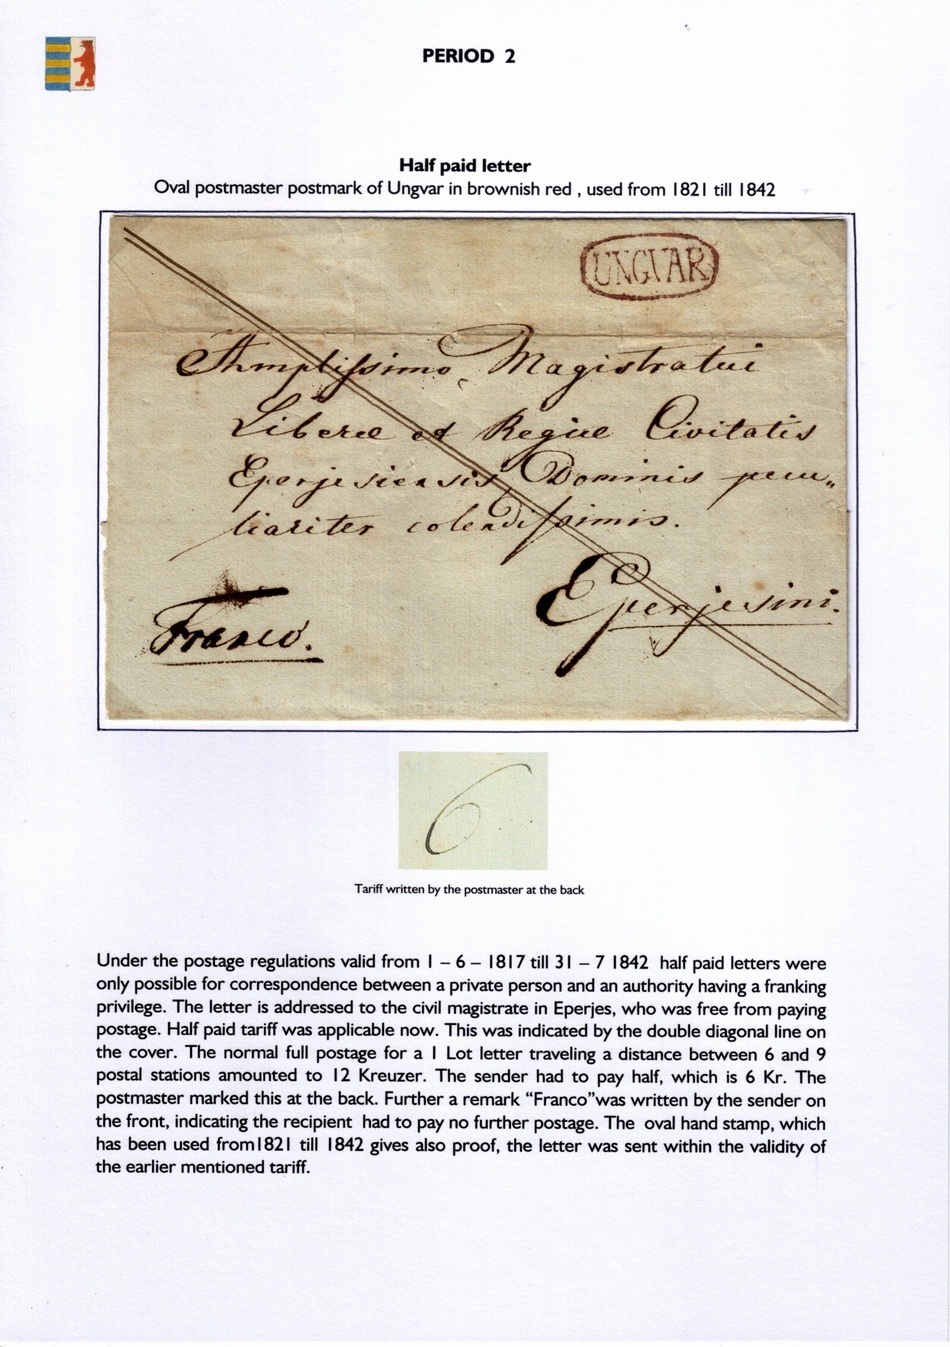 PERIOD 2
Half paid letter
Oval postmaster postmark of Ungvar in brownish red , used from 1821 till 1842
UNGVAR
Amplissimo Magistratui
Liberæ et Regiæ Civitatis
Eperjesiensis Dominis pecu„
liariter colendissimis.
Eperjesini.
Franco.
6
Tariff written by the postmaster at the back
Under the postage regulations valid from 1 – 6 – 1817 till 31 – 7 1842 half paid letters were
only possible for correspondence between a private person and an authority having a franking
privilege. The letter is addressed to the civil magistrate in Eperjes, who was free from paying
postage. Half paid tariff was applicable now. This was indicated by the double diagonal line on
the cover. The normal full postage for a 1 Lot letter traveling a distance between 6 and 9
postal stations amounted to 12 Kreuzer. The sender had to pay half, which is 6 Kr. The
postmaster marked this at the back. Further a remark “Franco”was written by the sender on
the front, indicating the recipient had to pay no further postage. The oval hand stamp, which
has been used from1821 till 1842 gives also proof, the letter was sent within the validity of
the earlier mentioned tariff.